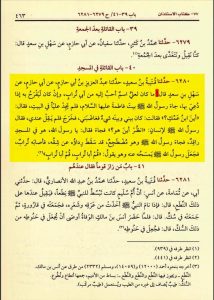 ٧٩- كتاب الاستئذان ٣٩-٤١/ ح ٦٢٧٩-٦٢٨١ ٤١٣
٣٩- باب القائلة بعد الجمعة
٦٢٧٩- حدثنا محمد بن كثير، حدثنا سفيان، عن أبي حازم، عن سهل بن سعد قال:
كنا نقيل ونتغدى بعد الجمعة
٤٠- باب القائلة في المسجد
٦٢٨٠- حدثنا قتيبة بن سعيد، حدثنا عبد العزيز بن أبي حازم، عن أبي حازم، عن
سهل بن سعد قال: ما كان لعلي اسم أحب إليه من أبي تراب، وإن كان ليفرح به إذا
دعي بها، جاء رسول الله ﷺ بيت فاطمة عليها السلام، فلم يجد عليا في البيت، فقال:
«أين ابن عمك؟» فقالت: كان بيني وبينه شيء، فغاضبني، فخرج فلم يقل عندي، فقال
رسول الله ﷺ لإنسان: «انظر أين هو» فجاء فقال: يا رسول الله، هو في المسجد راقد،
فجاء رسول الله ﷺ وهو مضطجع، قد سقط رداؤه عن شقه، فأصابه تراب،
فجعل رسول الله ﷺ يمسحه عنه وهو يقول: «قم أبا تراب، قم أبا تراب»
٤١- باب من زار قوما فقال عندهم
٦٢٨١- حدثنا قتيبة بن سعيد، حدثنا محمد بن عبد الله الأنصاري، قال: حدثني
أبي، عن ثمامة، عن أنس: أن أم سليم كانت تبسط للنبي ﷺ نطعا، فيقيل عندها على
ذلك النطع، قال: فإذا نام النبي ﷺ أخذت من عرقه وشعره، فجمعته في قارورة، ثم
جمعته في سك، قال: فلما حضر أنس بن مالك الوفاة أوصى أن يجعل في حنوطه من
ذلك السك، قال: فجعل في حنوطه
(١) انظر طرفه في (٩٣٩).
(٢) انظر طرفه في (٤٤١).